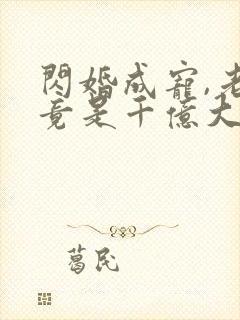 閃婚成寵,老
竟是千億大
葛民